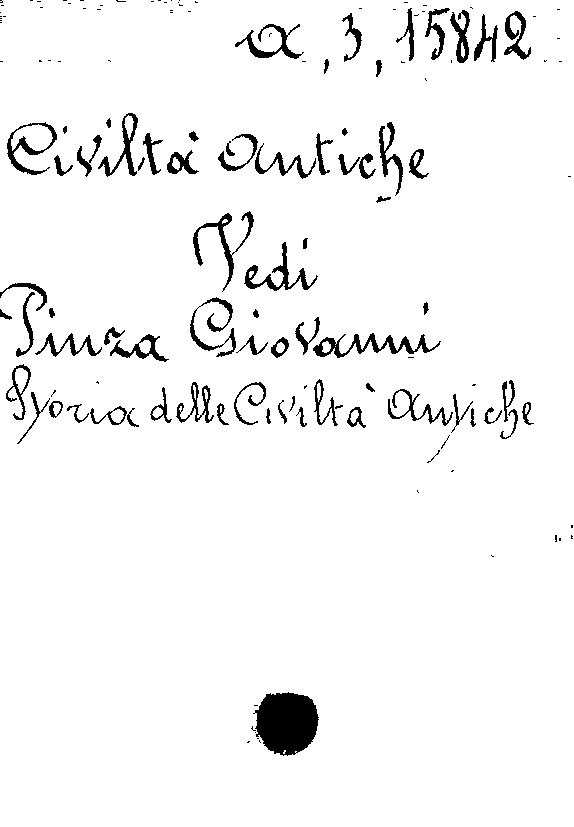 a, 3, 15842
Civiltà Antiche
Vedi
Pinza Giovanni
Storia delle Civiltà Antiche